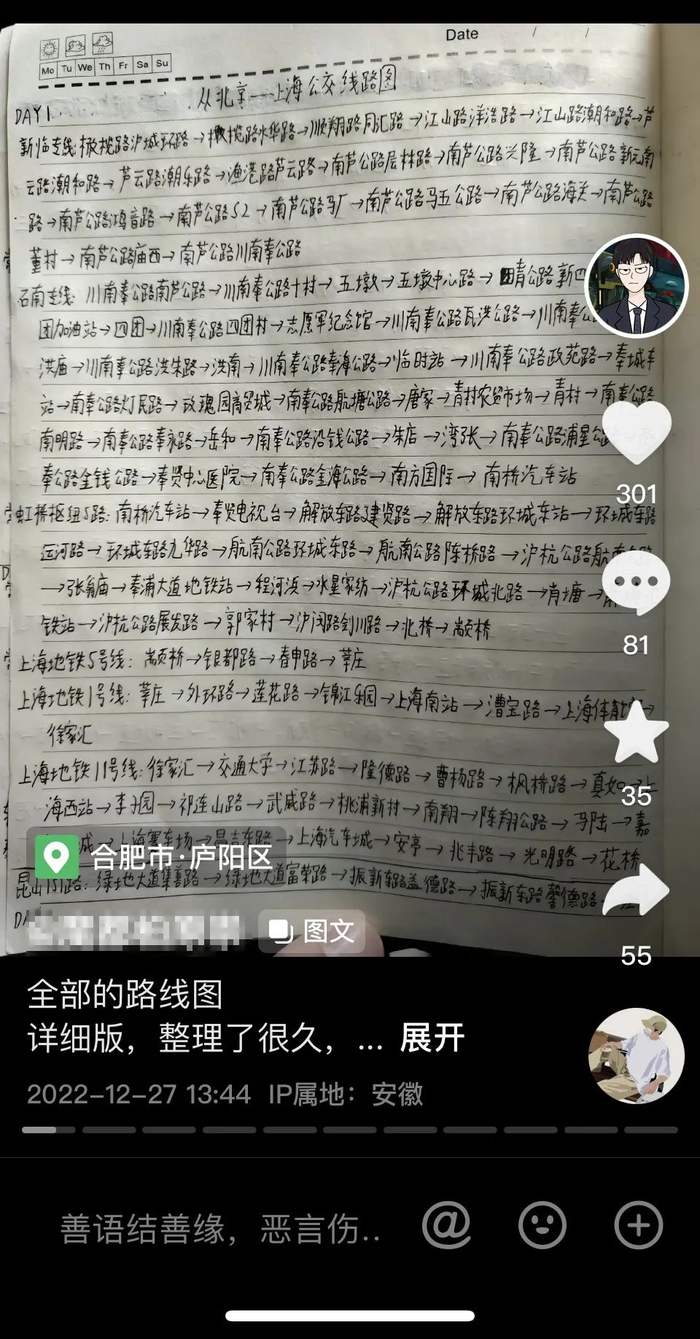 Date / /
Mo Tu We Th Fr Sa Su
从北京—上海公交线路图
DAY1......
新临专线:橄榄路沪城环路→橄榄路水华路→顺翔路月汇路→江山路洋浩路→江山路潮和路→芦
云路潮和路→芦云路潮乐路→渔港路芦云路→南芦公路层林路→南芦公路兴隆→南芦公路新元南
路→南芦公路鸿音路→南芦公路S2→南芦公路马厂→南芦公路马五公路→南芦公路海关→南芦公路
董村→南芦公路庙西→南芦公路川南奉公路
石南专线:川南奉公路南芦公路→川南奉公路十村→五墩→五墩中心路→晴公路新四
团加油站→四团→川南奉公路四团村→志愿军纪念馆→川南奉公路瓦洪公路→川南奉公
洪庙→川南奉公路洪朱路→洪南→川南奉公路奉海公路→临时站→川南奉公路政苑路→奉城车
站→南奉公路灯民路→玫瑰园商贸城→南奉公路航塘公路→唐家→青村农贸市场→青村→南奉公路
南明路→南奉公路奉永路→岳和→南奉公路沿钱公路→朱店→湾张→南奉公路浦星公
奉公路金钱公路→奉贤中心医院→南奉公路金海公路→南方国际→南桥汽车站
虹桥枢纽5路:南桥汽车站→奉贤电视台→解放东路建贤路→解放东路环城东站→环城东路
运河路→环城东路九华路→航南公路环城东路→航南公路陈桥路→沪杭公路航南公路
→张翁庙→奉浦大道地铁站→程河浜→水星家纺→沪杭公路环城北路→肖塘→
铁站→沪杭公路展发路→郭家村→沪闵路剑川路→北桥→颛桥
上海地铁5号线:颛桥→银都路→春申路→莘庄
上海地铁1号线:莘庄→外环路→莲花路→锦江乐园→上海南站→漕宝路→上海体育馆→
徐家汇
上海地铁11号线:徐家汇→交通大学→江苏路→隆德路→曹杨路→枫桥路→真如→上
海西站→李子园→祁连山路→武威路→桃浦新村→南翔→陈翔公路→马陆→嘉
城→上海赛车场→昌吉东路→上海汽车城→安亭→兆丰路→光明路→花桥
昆山151路:绿地大道集善路→绿地大道富荣路→振新东路益德路→振新东路馨德路
DA
301
81
35
55
合肥市·庐阳区
图文
全部的路线图
详细版，整理了很久，... 展开
2022-12-27 13:44 IP属地：安徽
善语结善缘，恶言伤..